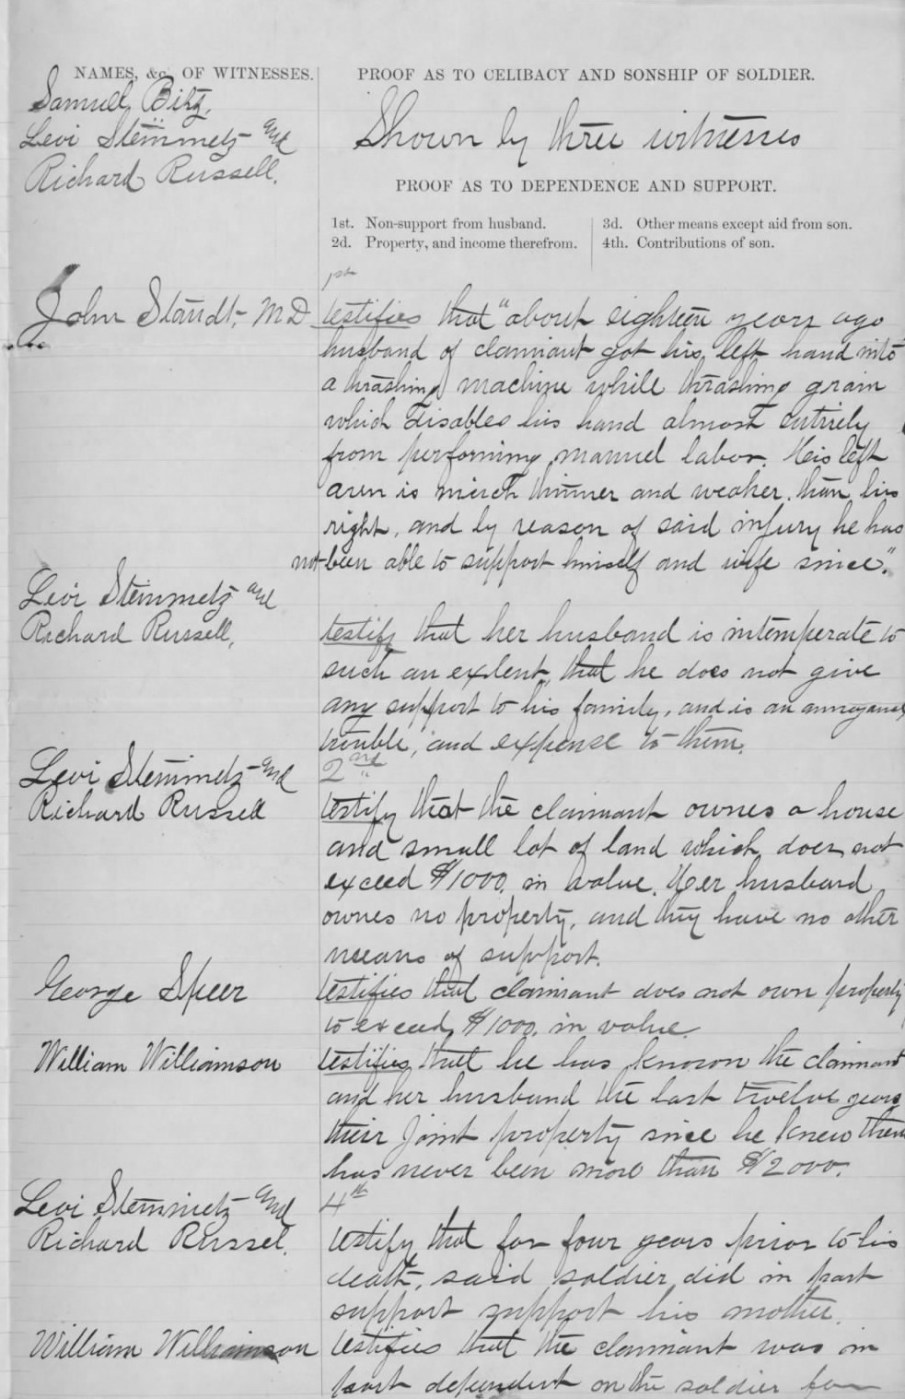 NAMES, &c. OF WITNESSES.
Samuel Bitz,
Levi Steinmetz and
Richard Russell.
PROOF AS TO CELIBACY AND SONSHIP OF SOLDIER.
Shown by three witnesses
PROOF AS TO DEPENDENCE AND SUPPORT.
1st. Non-support from husband.
2d. Property, and income therefrom.
3d. Other means except aid from son.
4th. Contributions of son.
1st
John Standt, M.D. testifies that "about eighteen years ago
husband of claimant got his left hand into
a thrashing machine while thrashing grain
which disables his hand almost entirely
from performing manuel labor. His left
arm is much thinner and weaker than his
right, and by reason of said injury he has
not been able to support himself and wife since."
Levi Steinmetz and
Richard Russell, testify that her husband is intemperate to
such an extent that he does not give
any support to his family, and is an annoyance
trouble, and expense to them.
2nd
Levi Steinmetz and
Richard Russell testify that the claimant ownes a house
and small lot of land which does not
exceed $1000. in value. Her husband
ownes no property, and they have no other
means of support.
George Speer testifies that claimant does not own property
to exceed $1000. in value.
William Williamson testifies that he has known the claimant
and her husband the last twelve years
their joint property since he knew them
has never been more than $2000.
4th
Levi Steinmetz and
Richard Russel. testify that for four years prior to his
death, said soldier did in part
support support his mother.
William Williamson testifies that the claimant was in
part dependent on the soldier for